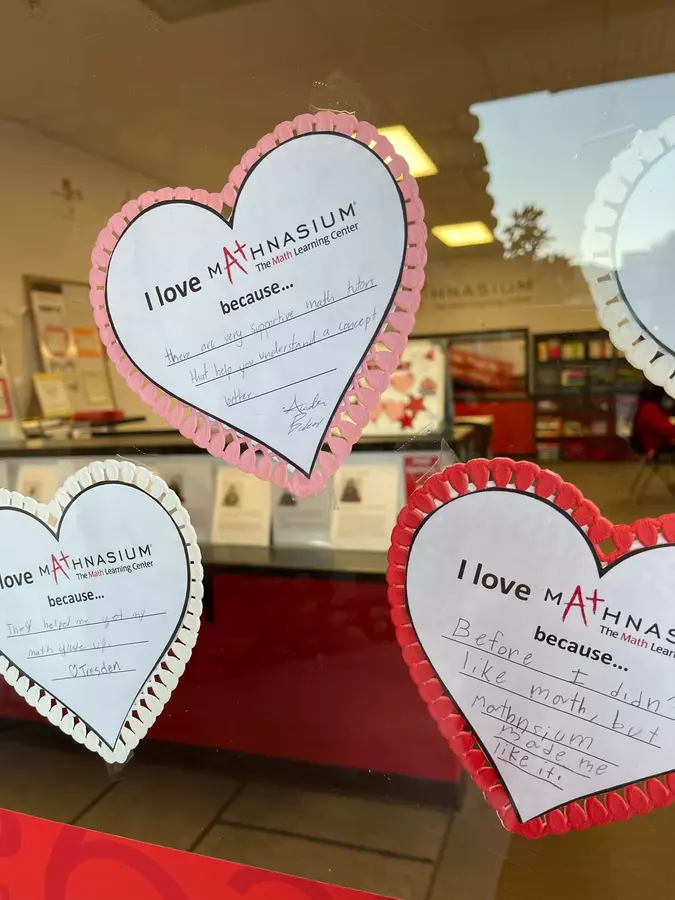 I love MATHNASIUM
The Math Learning Center
because...
there are very supportive math tutors
that help you understand a concept
better
HNASIUM
love MATHNASIUM
The Math Learning Center
because...
They helped me get my
math grade up
I love MATHNAS
The Math Lear
because...
Before I didn'
like math, but
Mathnsium
made me
like it.